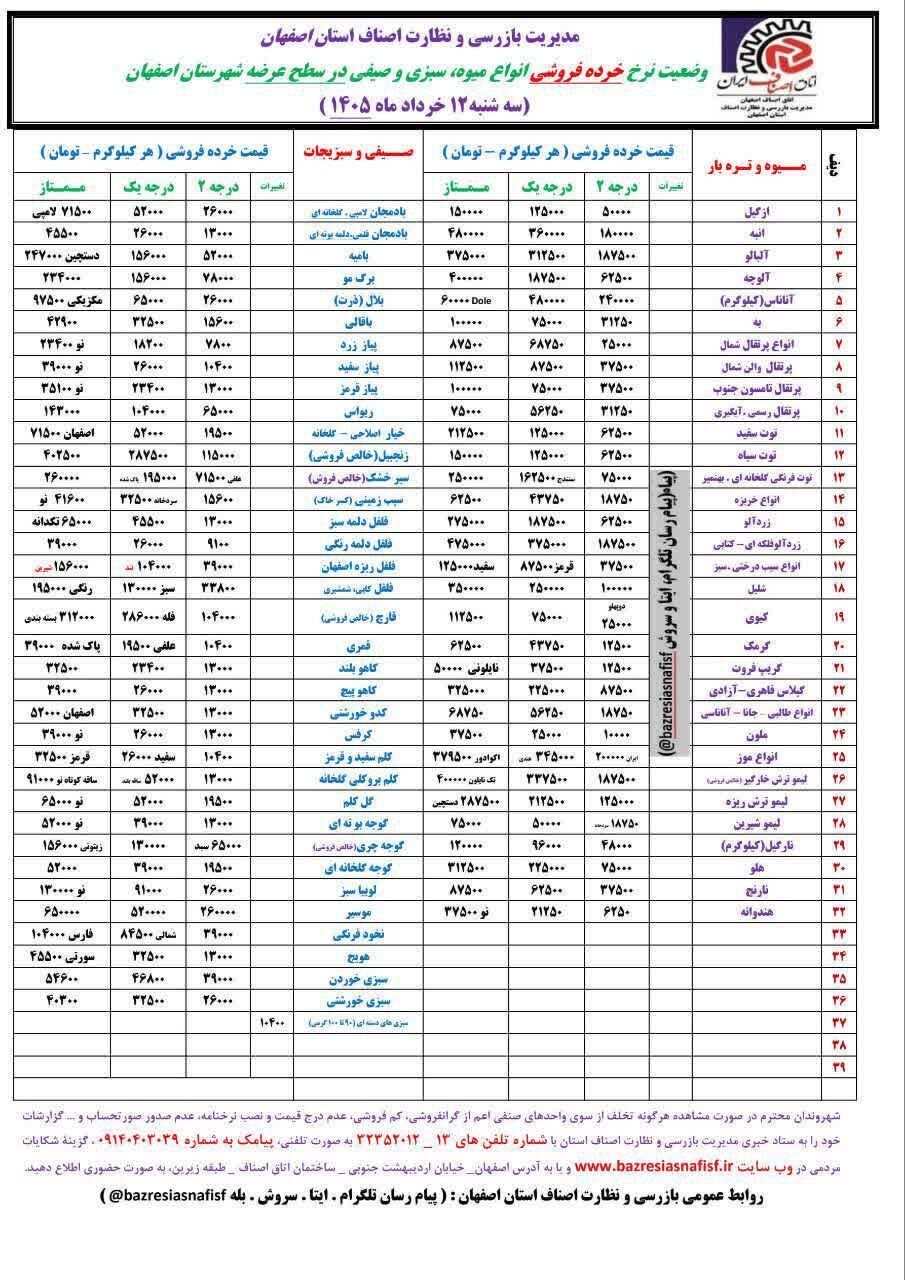 مدیریت بازرسی و نظارت اصناف استان اصفهان
وضعیت نرخ خرده فروشی انواع میوه، سبزی و صیفی در سطح عرضه شهرستان اصفهان
(سه شنبه ۱۲ خرداد ماه ۱۴۰۵)
اتاق اصناف ایران
اتاق اصناف اصفهان
مدیریت بازرسی و نظارت اصناف
استان اصفهان
ردیف میوه و تره بار قیمت خرده فروشی ( هر کیلوگرم – تومان ) صیفی و سبزیجات قیمت خرده فروشی ( هر کیلوگرم – تومان )
تغییرات درجه ۲ درجه یک ممتاز تغییرات درجه ۲ درجه یک ممتاز
۱ ازگیل ۵۰۰۰۰ ۱۲۵۰۰۰ ۱۵۰۰۰۰ بادمجان لامپی . گلخانه ای ۲۶۰۰۰ ۵۲۰۰۰ ۷۱۵۰۰ لامپی
۲ انبه ۱۸۰۰۰۰ ۳۶۰۰۰۰ ۴۸۰۰۰۰ بادمجان قلمی.دلمه بوته ای ۱۳۰۰۰ ۲۶۰۰۰ ۴۵۵۰۰
۳ آلبالو ۱۸۷۵۰۰ ۳۱۲۵۰۰ ۳۷۵۰۰۰ بامیه ۵۲۰۰۰ ۱۵۶۰۰۰ دستچین ۲۴۷۰۰۰
۴ آلوچه ۶۲۵۰۰ ۱۸۷۵۰۰ ۴۰۰۰۰۰ برگ مو ۷۸۰۰۰ ۱۵۶۰۰۰ ۲۳۴۰۰۰
۵ آناناس(کیلوگرم) ۲۴۰۰۰۰ ۴۸۰۰۰۰ ۶۰۰۰۰۰ Dole بلال (ذرت) ۲۶۰۰۰ ۶۵۰۰۰ مکزیکی ۹۷۵۰۰
۶ به ۳۱۲۵۰ ۷۵۰۰۰ ۱۰۰۰۰۰ باقالی ۱۵۶۰۰ ۳۲۵۰۰ ۴۲۹۰۰
۷ انواع پرتقال شمال ۲۵۰۰۰ ۶۸۷۵۰ ۸۷۵۰۰ پیاز زرد ۷۸۰۰ ۱۸۲۰۰ نو ۲۳۴۰۰
۸ پرتقال والن شمال ۳۷۵۰۰ ۸۷۵۰۰ ۱۱۲۵۰۰ پیاز سفید ۱۰۴۰۰ ۲۶۰۰۰ نو ۳۹۰۰۰
۹ پرتقال تامسون جنوب ۳۷۵۰۰ ۷۵۰۰۰ ۱۰۰۰۰۰ پیاز قرمز ۱۳۰۰۰ ۲۳۴۰۰ نو ۳۵۱۰۰
۱۰ پرتقال رسمی .آبگیری ۳۱۲۵۰ ۵۶۲۵۰ ۷۵۰۰۰ ریواس ۶۵۰۰۰ ۱۰۴۰۰۰ ۱۴۳۰۰۰
۱۱ توت سفید ۶۲۵۰۰ ۱۲۵۰۰۰ ۲۱۲۵۰۰ خیار اصلاحی – گلخانه ۱۹۵۰۰ ۵۲۰۰۰ اصفهان ۷۱۵۰۰
۱۲ توت سیاه ۶۲۵۰۰ ۱۲۵۰۰۰ ۱۵۰۰۰۰ زنجبیل(خالص فروشی) ۱۱۵۰۰۰ ۲۸۷۵۰۰ ۴۰۲۵۰۰
۱۳ توت فرنگی گلخانه ای . بهنمیر ۷۵۰۰۰ سنندج ۱۶۲۵۰۰ ۲۵۰۰۰۰ سیر خشک(خالص فروش) علفی ۷۱۵۰۰ ۱۹۵۰۰۰ پاک شده ۲۶۰۰۰۰
۱۴ انواع خربزه ۱۸۷۵۰ ۴۳۷۵۰ ۶۲۵۰۰ سیب زمینی (کسر خاک) ۱۵۶۰۰ سردخانه ۳۲۵۰۰ ۴۱۶۰۰ نو
۱۵ زردآلو ۶۲۵۰۰ ۱۸۷۵۰۰ ۲۷۵۰۰۰ فلفل دلمه سبز ۱۳۰۰۰ ۴۵۵۰۰ ۶۵۰۰۰ تکدانه
۱۶ زردآلوفلکه ای- کتابی ۱۸۷۵۰۰ ۳۷۵۰۰۰ ۴۷۵۰۰۰ فلفل دلمه رنگی ۹۱۰۰ ۲۶۰۰۰ ۳۹۰۰۰
۱۷ انواع سیب درختی .سبز ۳۷۵۰۰ قرمز ۸۷۵۰۰ سفید ۱۲۵۰۰۰ فلفل ریزه اصفهان ۳۹۰۰۰ ۱۰۴۰۰۰ تند ۱۵۶۰۰۰ شیرین
۱۸ شلیل ۱۰۰۰۰۰ ۲۵۰۰۰۰ ۳۵۰۰۰۰ فلفل کاپی، شمشیری ۳۳۸۰۰ سبز ۱۳۰۰۰۰ رنگی ۱۹۵۰۰۰
۱۹ کیوی دوپهلو ۲۵۰۰۰ ۷۵۰۰۰ ۱۱۲۵۰۰ قارچ (خالص فروشی) ۱۰۴۰۰۰ فله ۲۸۶۰۰۰ ۳۱۲۰۰۰ بسته بندی
۲۰ گرمک ۱۲۵۰۰ ۴۳۷۵۰ ۶۲۵۰۰ قمری ۱۰۴۰۰ علفی ۱۹۵۰۰ پاک شده ۳۹۰۰۰
۲۱ گریپ فروت ۱۲۵۰۰ ۳۷۵۰۰ نایلونی ۵۰۰۰۰ کاهو بلند ۱۳۰۰۰ ۲۳۴۰۰ ۳۲۵۰۰
۲۲ گیلاس قاهری-آزادی ۸۷۵۰۰ ۲۲۵۰۰۰ ۳۲۵۰۰۰ کاهو پیچ ۱۳۰۰۰ ۲۶۰۰۰ ۳۹۰۰۰
۲۳ انواع طالبی . جانا - آناناسی ۱۸۷۵۰ ۵۶۲۵۰ ۶۸۷۵۰ کدو خورشتی ۱۳۰۰۰ ۳۲۵۰۰ اصفهان ۵۲۰۰۰
۲۴ ملون ۱۰۰۰۰ ۲۵۰۰۰ ۳۷۵۰۰ کرفس ۱۳۰۰۰ ۲۶۰۰۰ نو ۳۹۰۰۰
۲۵ انواع موز ایران ۲۰۰۰۰۰ ۳۴۵۰۰۰ هندی اکوادور ۳۷۹۵۰۰ کلم سفید و قرمز ۱۰۴۰۰ سفید ۲۶۰۰۰ قرمز ۳۲۵۰۰
۲۶ لیمو ترش خارگیر (خالص فروشی) ۱۸۷۵۰۰ ۳۳۷۵۰۰ تک نایلون ۴۰۰۰۰۰ کلم بروکلی گلخانه ۱۳۰۰۰ ۵۲۰۰۰ ساقه بلند ساقه کوتاه نو ۹۱۰۰۰
۲۷ لیمو ترش ریزه ۱۲۵۰۰۰ ۲۱۲۵۰۰ ۲۸۷۵۰۰ دستچین گل کلم ۱۹۵۰۰ ۵۲۰۰۰ نو ۶۵۰۰۰
۲۸ لیمو شیرین ۱۸۷۵۰ سردخانه ۵۰۰۰۰ ۷۵۰۰۰ گوجه بوته ای ۱۳۰۰۰ ۳۹۰۰۰ نو ۵۲۰۰۰
۲۹ نارگیل(کیلوگرم) ۴۸۰۰۰ ۹۶۰۰۰ ۱۲۰۰۰۰ گوجه چری(خالص فروشی) ۶۵۰۰۰ سبد ۱۳۰۰۰۰ زیتونی ۱۵۶۰۰۰
۳۰ هلو ۷۵۰۰۰ ۲۲۵۰۰۰ ۳۱۲۵۰۰ گوجه گلخانه ای ۱۹۵۰۰ ۳۹۰۰۰ ۵۲۰۰۰
۳۱ نارنج ۳۷۵۰۰ ۶۲۵۰۰ ۸۷۵۰۰ لوبیا سبز ۲۶۰۰۰ ۹۱۰۰۰ نو ۱۳۰۰۰۰
۳۲ هندوانه ۶۲۵۰ ۲۱۲۵۰ نو ۳۷۵۰۰ موسیر ۲۶۰۰۰۰ ۵۲۰۰۰۰ ۶۵۰۰۰۰
۳۳ نخود فرنگی ۳۹۰۰۰ شمالی ۸۴۵۰۰ فارس ۱۰۴۰۰۰
۳۴ هویج ۱۳۰۰۰ ۳۲۵۰۰ سورتی ۴۵۵۰۰
۳۵ سبزی خوردن ۳۹۰۰۰ ۴۶۸۰۰ ۵۴۶۰۰
۳۶ سبزی خورشتی ۲۶۰۰۰ ۳۲۵۰۰ ۴۰۳۰۰
۳۷ سبزی های دسته ای (۹۰ تا ۱۰۰ گرمی) ۱۰۴۰۰
۳۸
۳۹
(پیام رسان تلگرام، ایتا و سروش bazresiasnafisf@)
شهروندان محترم در صورت مشاهده هرگونه تخلف از سوی واحدهای صنفی اعم از گرانفروشی، کم فروشی، عدم درج قیمت و نصب نرخنامه، عدم صدور صورتحساب و ... گزارشات
خود را به ستاد خبری مدیریت بازرسی و نظارت اصناف استان با شماره تلفن های ۱۳ _ ۳۲۳۵۲۰۱۲ به صورت تلفنی، پیامک به شماره ۰۹۱۴۰۴۰۳۰۳۹ ، گزینهٔ شکایات
مردمی در وب سایت www.bazresiasnafisf.ir و یا به آدرس اصفهان_ خیابان اردیبهشت جنوبی _ ساختمان اتاق اصناف _ طبقه زیرین، به صورت حضوری اطلاع دهید.
روابط عمومی بازرسی و نظارت اصناف استان اصفهان : ( پیام رسان تلگرام . ایتا . سروش . بله bazresiasnafisf@ )